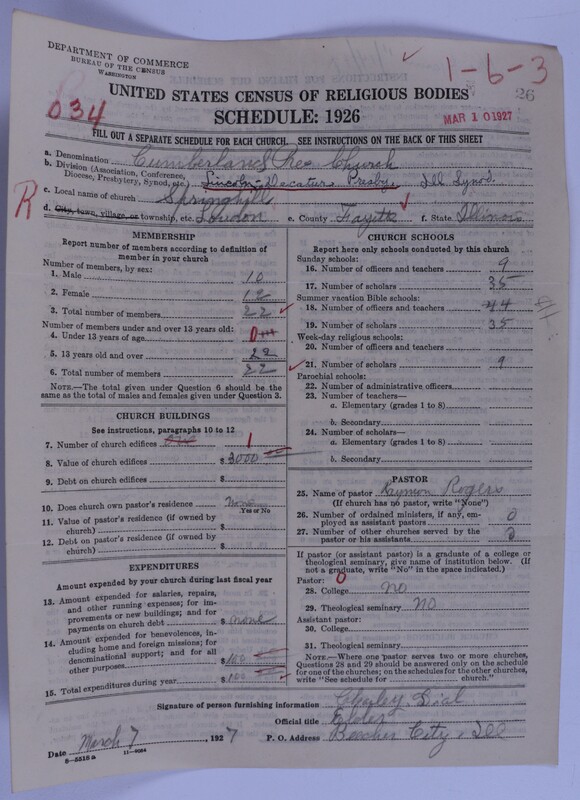 DEPARTMENT OF COMMERCE
BUREAU OF THE CENSUS
WASHINGTON
1-6-3
26
UNITED STATES CENSUS OF RELIGIOUS BODIES
034
SCHEDULE: 1926
MAR 10 1927
FILL OUT A SEPARATE SCHEDULE FOR EACH CHURCH. SEE INSTRUCTIONS ON THE BACK OF THIS SHEET
a. Denomination Cumberland Pres Church
b. Division (Association, Conference, Diocese, Presbytery, Synod, etc.) Lincoln-Decatur Presby. Ill Synod.
c. Local name of church Springhill
R
d. City, town, village, or township, etc. Loudon e. County Fayette f. State Illinois
MEMBERSHIP
Report number of members according to definition of member in your church
Number of members, by sex:
1. Male 10
2. Female 12
3. Total number of members 22
Number of members under and over 13 years old:
4. Under 13 years of age 0
5. 13 years old and over 22
6. Total number of members 22
NOTE.—The total given under Question 6 should be the same as the total of males and females given under Question 3.
CHURCH BUILDINGS
See instructions, paragraphs 10 to 12
7. Number of church edifices One 1
8. Value of church edifices $ 3000
9. Debt on church edifices $
10. Does church own pastor's residence None
Yes or No
11. Value of pastor's residence (if owned by church) $
12. Debt on pastor's residence (if owned by church) $
EXPENDITURES
Amount expended by your church during last fiscal year
13. Amount expended for salaries, repairs, and other running expenses; for improvements or new buildings; and for payments on church debt $ none
14. Amount expended for benevolences, including home and foreign missions; for denominational support; and for all other purposes $ 100
15. Total expenditures during year $ 100
CHURCH SCHOOLS
Report here only schools conducted by this church
Sunday schools:
16. Number of officers and teachers 9
17. Number of scholars 35
Summer vacation Bible schools:
18. Number of officers and teachers
19. Number of scholars 35
Week-day religious schools:
20. Number of officers and teachers
21. Number of scholars 9
Parochial schools:
22. Number of administrative officers
23. Number of teachers—
a. Elementary (grades 1 to 8)
b. Secondary
24. Number of scholars—
a. Elementary (grades 1 to 8)
b. Secondary
PASTOR
25. Name of pastor Raymon Rogers
(If church has no pastor, write "None")
26. Number of ordained ministers, if any, employed as assistant pastors 0
27. Number of other churches served by the pastor or his assistants
If pastor (or assistant pastor) is a graduate of a college or theological seminary, give name of institution below. (If not a graduate, write "No" in the space indicated.)
Pastor: 0
28. College no
29. Theological seminary no
Assistant pastor:
30. College
31. Theological seminary
NOTE.—Where one pastor serves two or more churches, Questions 28 and 29 should be answered only on the schedule for one of the churches; on the schedules for the other churches, write "See schedule for church."
Signature of person furnishing information Charley Dial
Official title Elder
Date March 7, 1927 P. O. Address Beecher City, Ill
8-5515a 11-9064